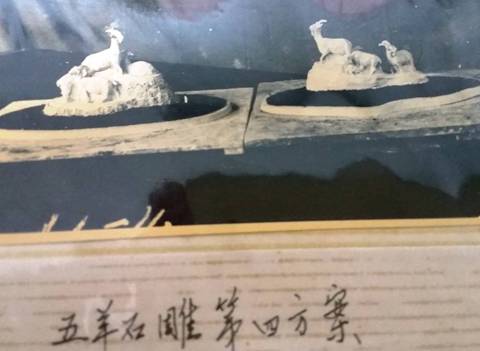 五羊石雕第四方案